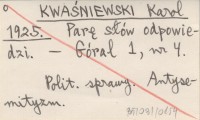 KWAŚNIEWSKI Karol
1925. Parę słów odpowie-
dzi. — Góral 1, nr 4.
Polit. sprawy. Antyse-
mityzm.